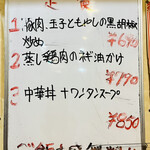 定食
1. 豚肉、玉子ともやしの黒胡椒
炒め ¥690
2. 蒸し鶏肉のネギ油かけ
¥790
3 中華丼 +ワンタンスープ
¥850